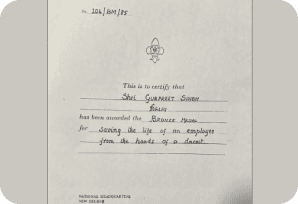 No. 104/BM/85
This is to certify that
Shri GURPREET SINGH
has been awarded the BRONZE MEDAL
for saving the life of an employee
from the hands of a dacoit.
NATIONAL HEADQUARTERS
NEW DELHI